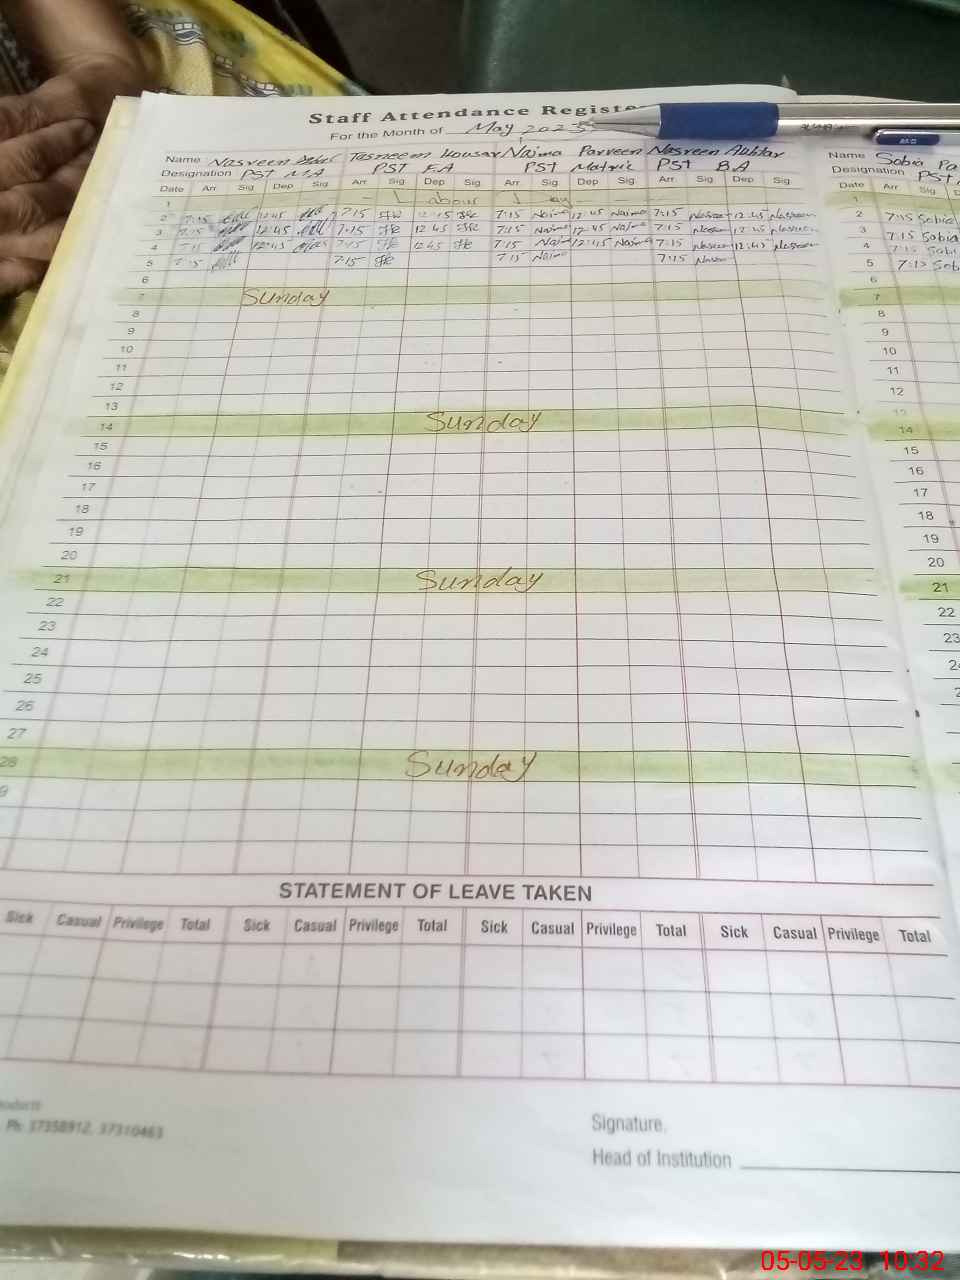 Staff Attendance Registe
For the Month of May 2023
Name Nasreen Tasneem Kousar Naima Parveen Nasreen Akhtar
Designation PST MA PST FA PST Matric PST BA
Date Arr Sig Dep Sig Arr Sig Dep Sig Arr Sig Dep Sig Arr Sig Dep Sig
1 Labour Day
2 7:15 12:45 7:15 12:45 7:15 Naima 12:45 Naima 7:15 Nasreen 12:45 Nasreen
3 7:15 12:45 7:15 12:45 7:15 Naima 12:45 Naima 7:15 Nasreen 12:45 Nasreen
4 7:15 12:45 7:15 12:45 7:15 Naima 12:45 Naima 7:15 Nasreen 12:45 Nasreen
5 7:15 7:15 7:15 Naima 7:15 Nasreen
6
7 Sunday
8
9
10
11
12
13
14 Sunday
15
16
17
18
19
20
21 Sunday
22
23
24
25
26
27
28 Sunday
9
STATEMENT OF LEAVE TAKEN
Sick Casual Privilege Total Sick Casual Privilege Total Sick Casual Privilege Total Sick Casual Privilege Total
Ph: 37358912, 37310463
Signature.
Head of Institution
Name Sobia Pa
Designation PST
Date Arr Sig D
1
2 7:15 Sobia
3 7:15 Sobia
4 7:15 Sobi
5 7:15 Sob
6
7
8
9
10
11
12
13
14
15
16
17
18
19
20
21
22
23
2
2
05-05-23 10:32